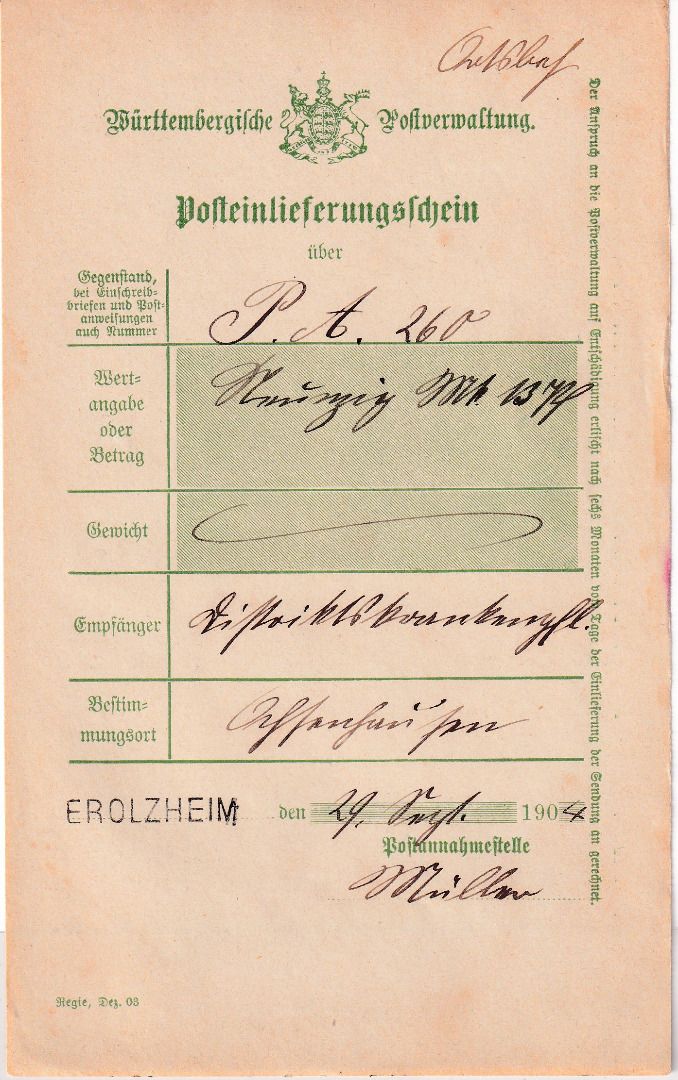 Württembergische Postverwaltung.
Posteinlieferungsschein
über
Gegenstand,
bei Einschreib-
briefen und Post-
anweisungen
auch Nummer
P. A. 260
Wert-
angabe
oder
Betrag
Neunzig Mk 13 Pf
Gewicht
Empfänger
Distriktskrankenpfl.
Bestim-
mungsort
Ochsenhausen
EROLZHEIM den 29. Sept. 1904
Postannahmestelle
Müller
Regie, Dez. 03
Der Anspruch an die Postverwaltung auf Entschädigung erlischt nach sechs Monaten vom Tage der Einlieferung der Sendung an gerechnet.